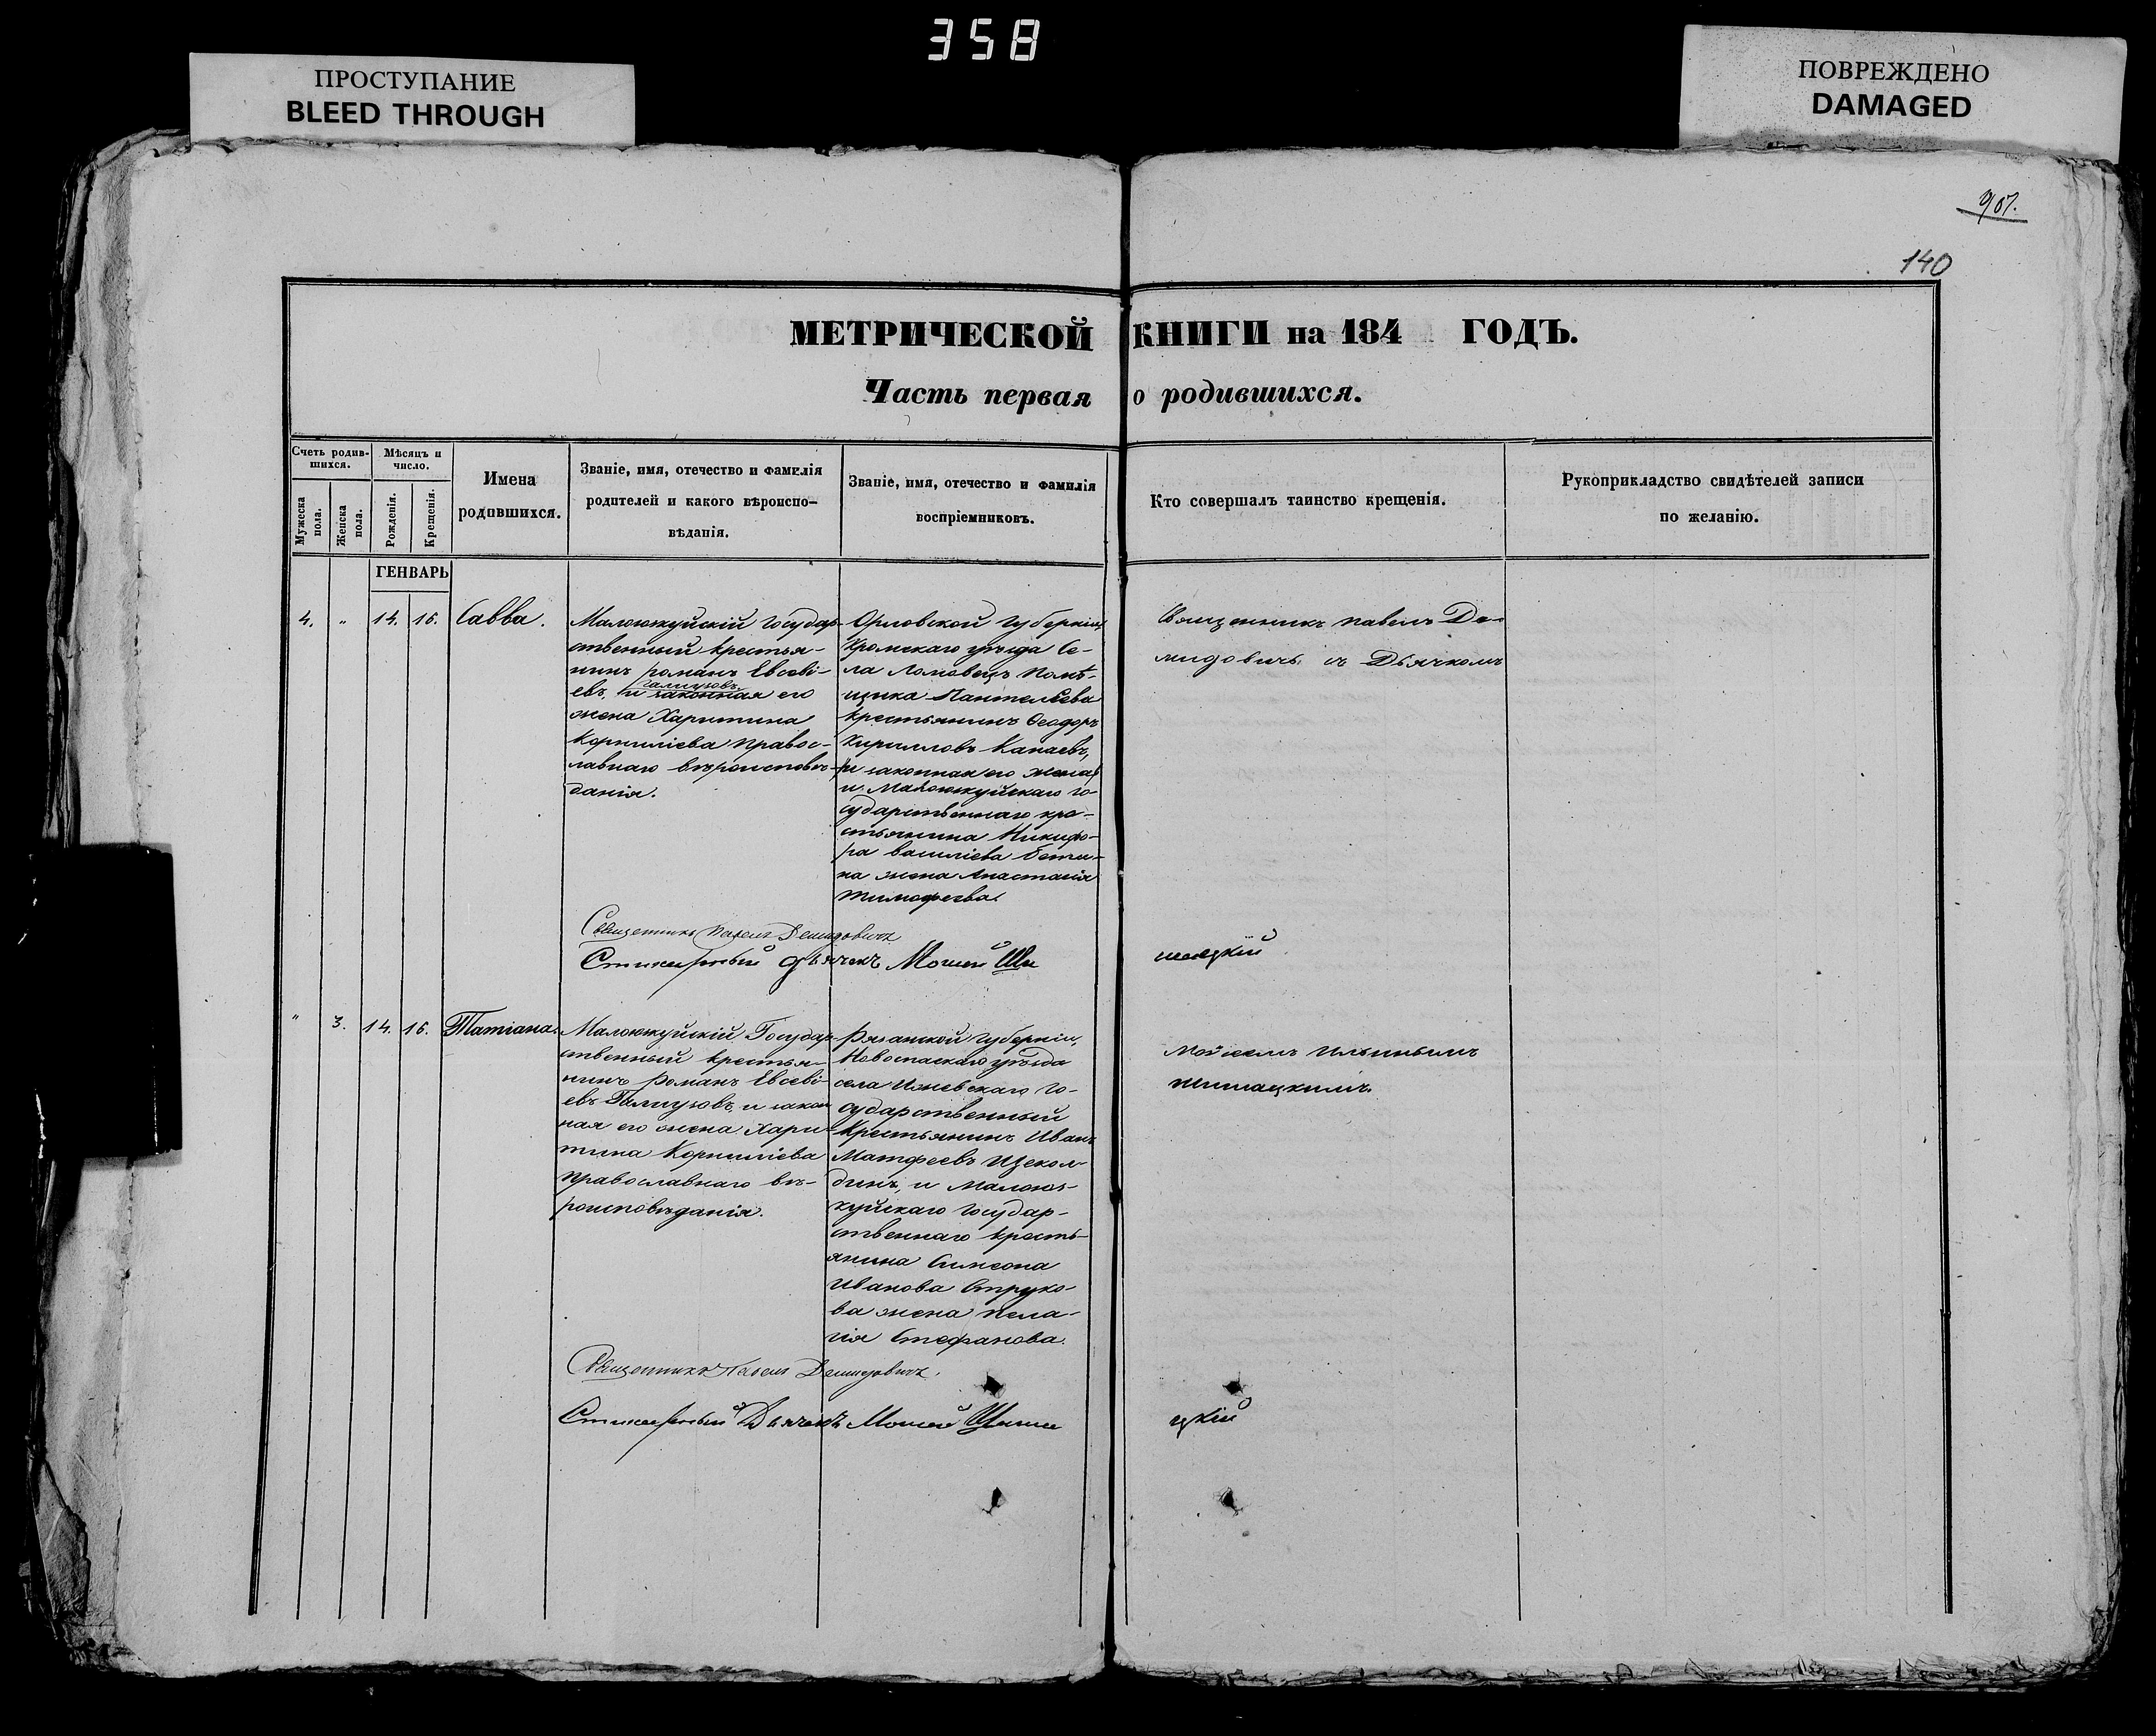 358
ПРОСТУПАНИЕ
BLEED THROUGH
ПОВРЕЖДЕНО
DAMAGED
907.
140
МЕТРИЧЕСКОЙ КНИГИ на 184 ГОДЪ.
Часть первая о родившихся.
Счетъ родив-
шихся.
Мужеска
пола.
Женска
пола.
Мѣсяцъ и
число.
Рожденія.
Крещенія.
Имена
родившихся.
Званіе, имя, отечество и фамилія
родителей и какого вѣроиспо-
вѣданія.
Званіе, имя, отечество и фамилія
воспріемниковъ.
Кто совершалъ таинство крещенія.
Рукоприкладство свидѣтелей записи
по желанію.
ГЕНВАРЬ
4. " 14. 16. Савва.
Малоюжуйскій Государ-
ственный крестья-
нинъ романъ Евсеві-
галиузовъ
евъ, и законная его
жена Харитина
Корниліева правос-
лавнаго вѣроисповѣ-
данія.
Орловской губерніи
Кромскаго уѣзда Се-
ла Ломовецъ Помѣ-
щика Пантелѣева
крестьянинъ Ѳеодоръ
Кирилловъ Канаевъ,
и законная его жена
и Малоюжуйскаго го-
сударственнаго кре-
стьянина Никифо-
ра василіева
на жена Анастасія
Тимофеева.
Священникъ павелъ Де-
мидовичь съ Дьячкомъ
Священникъ Павелъ Демидовичъ
Стихарный дьячекъ Моисей Ши
шацкій
" 3. 14. 16. Татіана.
Малоюжуйскій Государ-
ственный крестья-
нинъ романъ Евсеві-
евъ Галиузовъ, и закон
ная его жена Хари-
тина Корниліева
православнаго вѣ-
роисповѣданія.
Рязанской губерніи,
Новоспаскаго уѣзда
села Ижевскаго го-
сударственный
крестьянинъ Иванъ
Матфеевъ Щекол-
динъ, и Малою-
жуйскаго государ-
ственнаго кресть-
янина Симеона
Иванова Струко-
ва жена пела-
гія Стефанова.
Мойсеемъ Ильинымъ
Шишацкимъ.
Священникъ Павелъ Демидовичъ.
Стихарный Дьячекъ Моисей Шиша
цкій